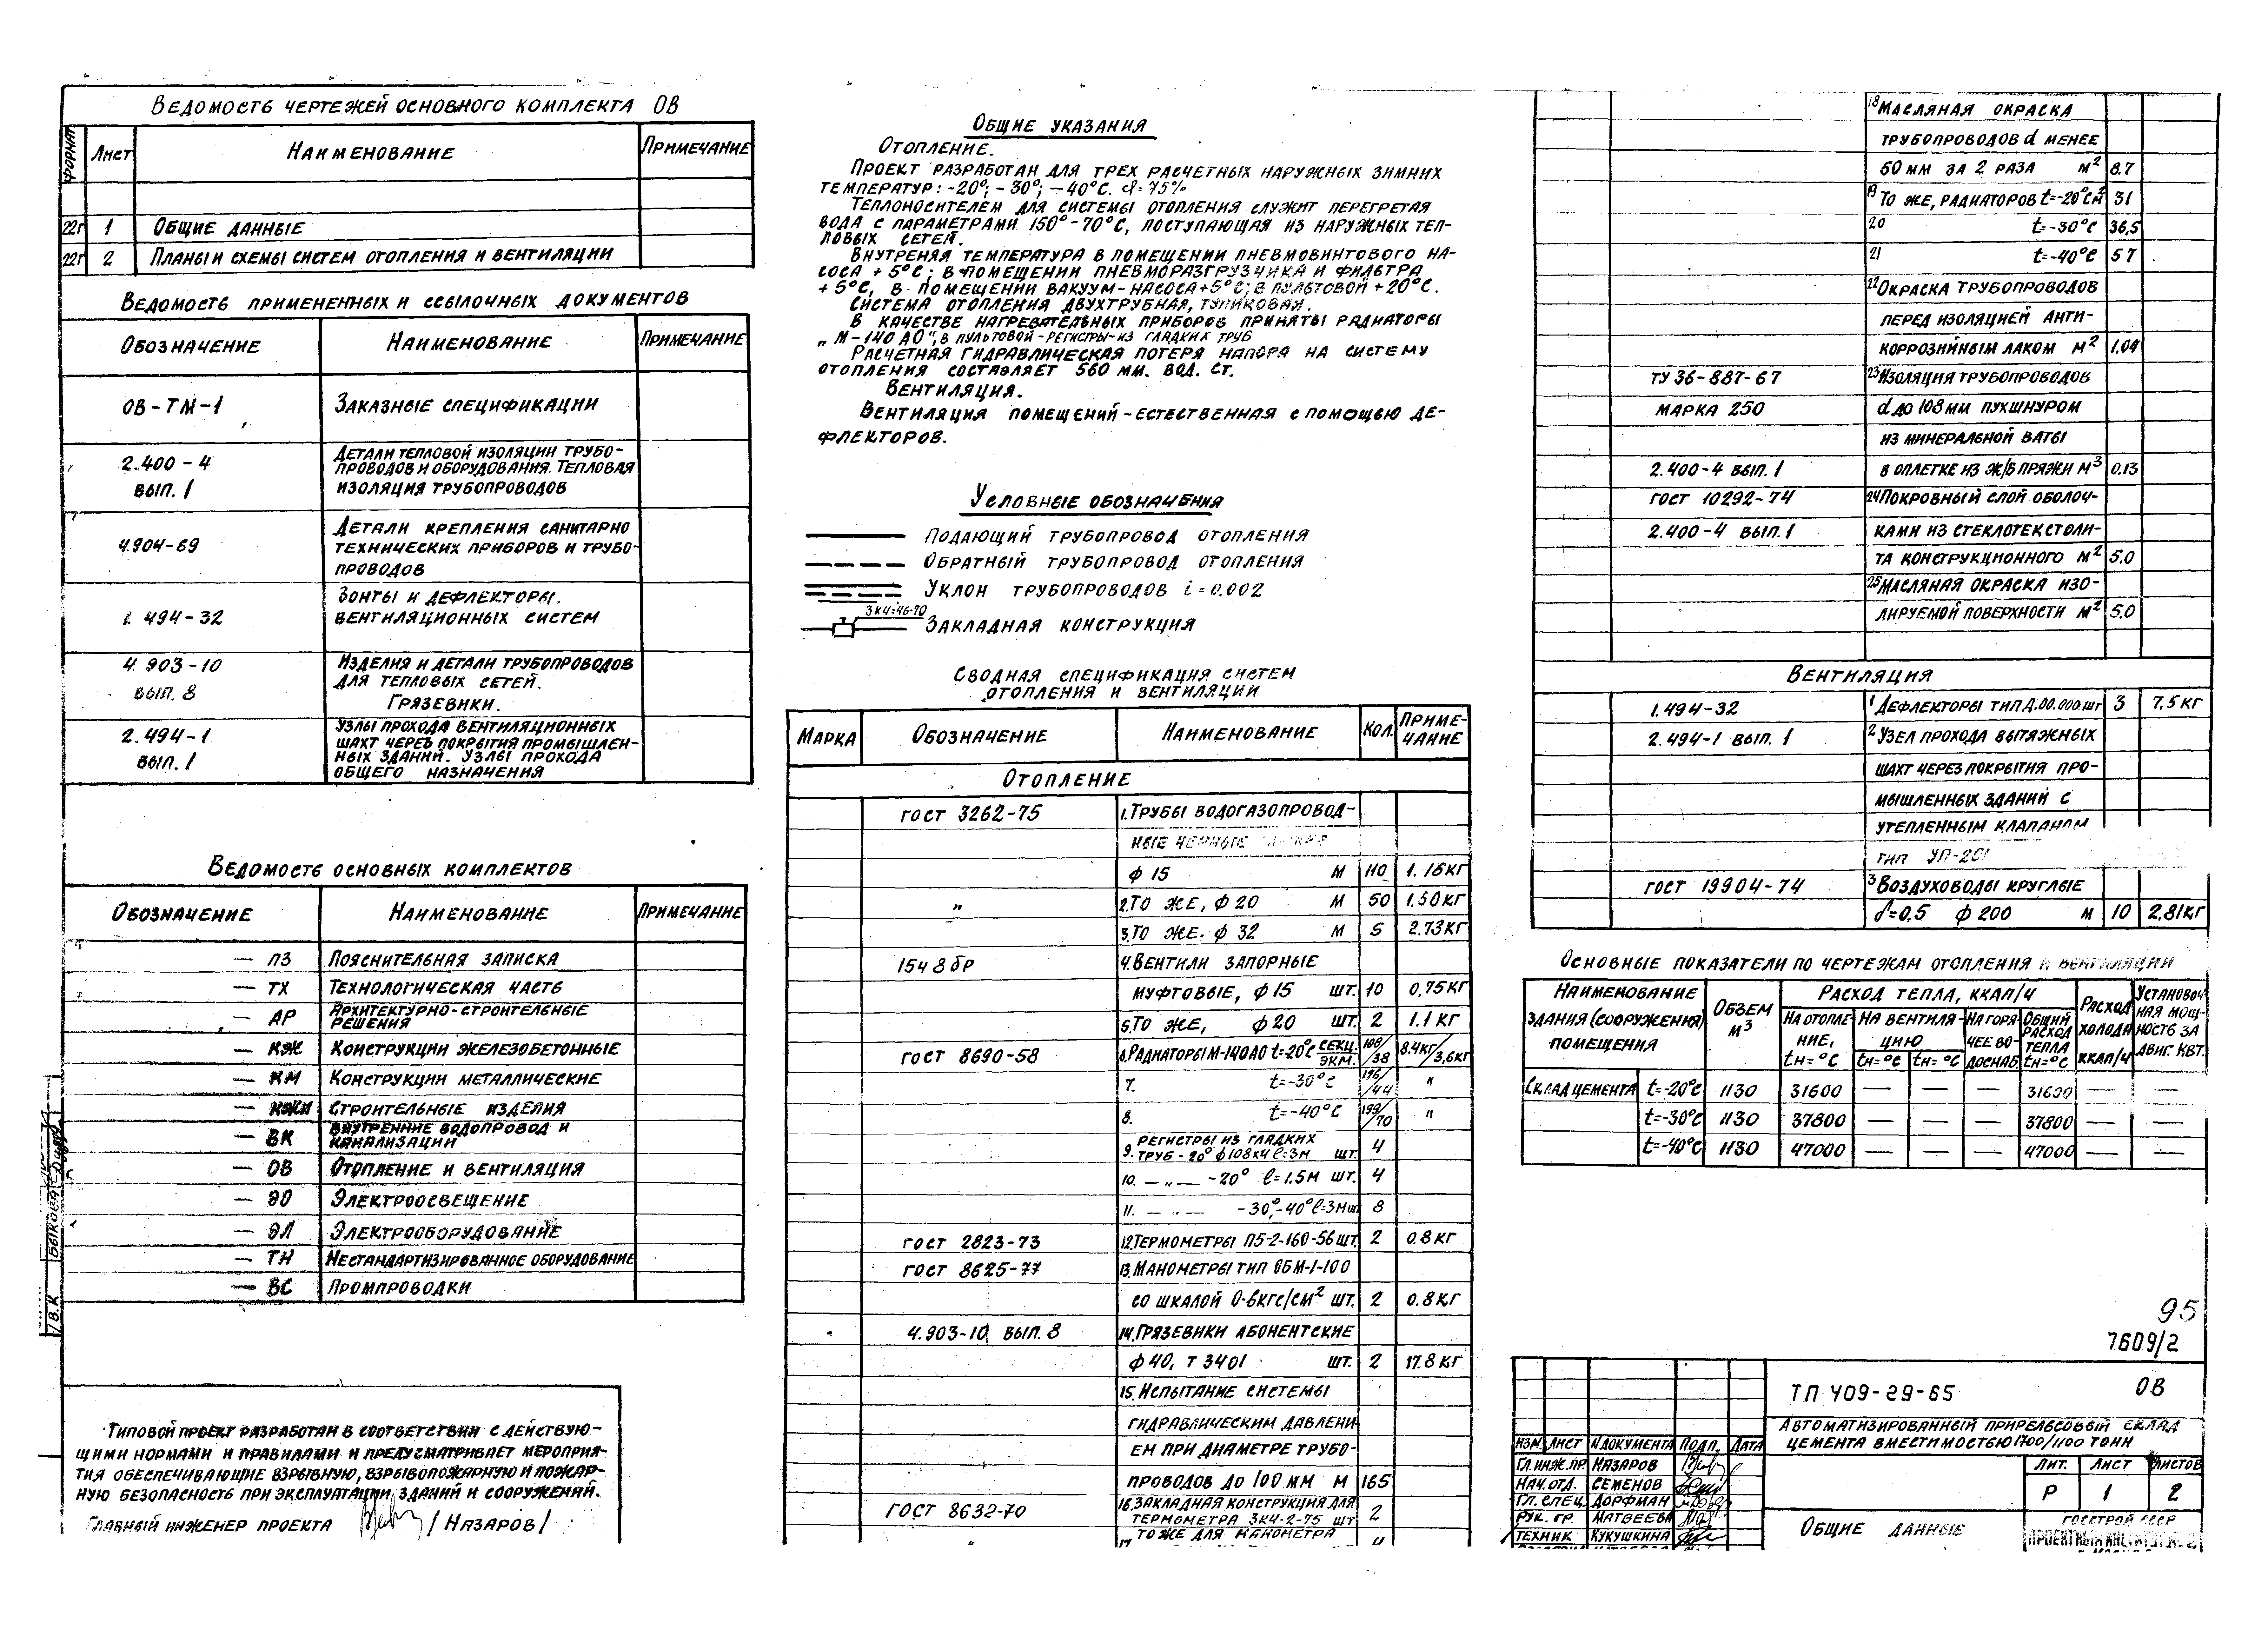 Ведомость чертежей основного комплекта ОВ
Формат Лист Наименование Примечание
22г 1 Общие данные
22г 2 Планы и схемы систем отопления и вентиляции
Ведомость примененных и ссылочных документов
Обозначение Наименование Примечание
ОВ-ТМ-1 Заказные спецификации
2.400-4 вып. 1
Детали тепловой изоляции трубо-
проводов и оборудования. Тепловая
изоляция трубопроводов
4.904-69
Детали крепления санитарно
технических приборов и трубо-
проводов
1.494-32
Зонты и дефлекторы.
вентиляционных систем
4.903-10 вып. 8
Изделия и детали трубопроводов
для тепловых сетей.
Грязевики.
2.494-1 вып. 1
Узлы прохода вентиляционных
шахт через покрытия промышлен-
ных зданий. Узлы прохода
общего назначения
Ведомость основных комплектов
Обозначение Наименование Примечание
— ПЗ Пояснительная записка
— ТХ Технологическая часть
— АР Архитектурно-строительные
решения
— КЖ Конструкции железобетонные
— КМ Конструкции металлические
— КЖИ Строительные изделия
— ВК Внутренние водопровод и
канализации
— ОВ Отопление и вентиляция
— ЭО Электроосвещение
— ЭЛ Электрооборудование
— ТН Нестандартизированное оборудование
— ВС Промпроводки
Быкова
В.К
Типовой проект разработан в соответствии с действую-
щими нормами и правилами и предусматривает мероприя-
тия обеспечивающие взрывную, взрывопожарную и пожар-
ную безопасность при эксплуатации зданий и сооружений.
Главный инженер проекта /Назаров/
Общие указания
Отопление.
Проект разработан для трех расчетных наружных зимних
температур: -20°; -30°; -40°С. φ=75%
Теплоносителем для системы отопления служит перегретая
вода с параметрами 150°-70°С, поступающая из наружных теп-
ловых сетей.
Внутреняя температура в помещении пневмовинтового на-
соса +5°С; в помещении пневморазгрузчика и фильтра
+5°С, в помещении вакуум-насоса +5°С; в пультовой +20°С.
Система отопления двухтрубная, тупиковая.
В качестве нагревательных приборов приняты радиаторы
„М-140 АО“, в пультовой-регистры-из гладких труб
Расчетная гидравлическая потеря напора на систему
отопления составляет 560 мм. вод. ст.
Вентиляция.
Вентиляция помещений-естественная с помощью де-
флекторов.
Условные обозначения
Подающий трубопровод отопления
Обратный трубопровод отопления
Уклон трубопроводов i=0.002
3К4-46-70
Закладная конструкция
Сводная спецификация систем
отопления и вентиляции
Марка Обозначение Наименование Кол. Приме-
чание
Отопление
ГОСТ 3262-75 1. Трубы водогазопровод-
ные черные
ф 15 м 110 1.16 кг
„ 2. То же, ф 20 м 50 1.50 кг
3. То же. ф 32 м 5 2.73 кг
15ч 8 бр 4. Вентили запорные
муфтовые, ф 15 шт. 10 0,75 кг
5. То же, ф 20 шт. 2 1.1 кг
ГОСТ 8690-58 6. Радиаторы М-140АО t=-20°С секц./экм. 108/38 8.4кг/3,6кг
7. t=-30°С 126/44 „
8. t=-40°С 199/70 „
9. Регистры из гладких
труб -20° ф108х4 ℓ=3м шт. 4
10. —„— -20° ℓ=1.5м шт. 4
11. —„— -30°,-40° ℓ=3м шт. 8
ГОСТ 2823-73 12. Термометры П5-2-160-56 шт. 2 0.8 кг
ГОСТ 8625-77 13. Манометры тип ОБМ-1-100
со шкалой 0-6кгс/см² шт. 2 0.8 кг
4.903-10 вып. 8 14. Грязевики абонентские
ф 40, Т 34.01 шт. 2 17.8 кг
15. Испытание системы
гидравлическим давлени
ем при диаметре трубо-
проводов до 100 мм м 165
ГОСТ 8632-70 16. Закладная конструкция для
термометра 3К4-2-75 шт 2
„ 17. То же для манометра
18 Масляная окраска
трубопроводов d менее
50 мм за 2 раза м² 8.7
19 То же, радиаторов t=-20°С м² 31
20 t=-30°С 36,5
21 t=-40°С 57
22 Окраска трубопроводов
перед изоляцией анти-
коррозийным лаком м² 1.04
ТУ 36-887-67 23 Изоляция трубопроводов
марка 250 d до 108 мм пухшнуром
из минеральной ваты
2.400-4 вып. 1 в оплетке из ж/б пряжи м³ 0.13
ГОСТ 10292-74 24 Покровный слой оболоч-
2.400-4 вып. 1 ками из стеклотекстоли-
та конструкционного м² 5.0
25 Масляная окраска изо-
лируемой поверхности м² 5.0
Вентиляция
1.494-32 1 Дефлекторы тип Д.00.000 шт 3 7.5 кг
2.494-1 вып. 1 2 Узел прохода вытяжных
шахт через покрытия про-
мышленных зданий с
утепленным клапаном
тип УП-201
ГОСТ 19904-74 3 Воздуховоды круглые
δ=0,5 ф 200 м 10 2.81 кг
Основные показатели по чертежам отопления и вентиляции
Наименование здания (сооружения) помещения
Объем м³
Расход тепла, ккал/ч
На отопле-
ние, tн=°С
На вентиля-
цию tн=°С tн=°С
На горя-
чее во-
доснаб.
Общий расход тепла tн=°С
Расход холода ккал/ч
Установоч-
ная мощ-
ность эл. двиг. квт.
Склад цемента t=-20°С 1130 31600 — — — 31600 — —
t=-30°С 1130 37800 — — — 37800 — —
t=-40°С 1130 47000 — — — 47000 — —
95
7609/2
ТП 409-29-65 ОВ
Автоматизированный прирельсовый склад
цемента вместимостью 1700/1100 тонн
Изм. Лист N документа Подп. Дата
Гл.инж.пр. Назаров
Нач. отд. Семенов
Гл. спец. Дорфман
Рук. гр. Матвеева
Техник Кукушкина
Лит. Лист Листов
Р 1 2
Общие данные
Госстрой СССР
Проектный институт